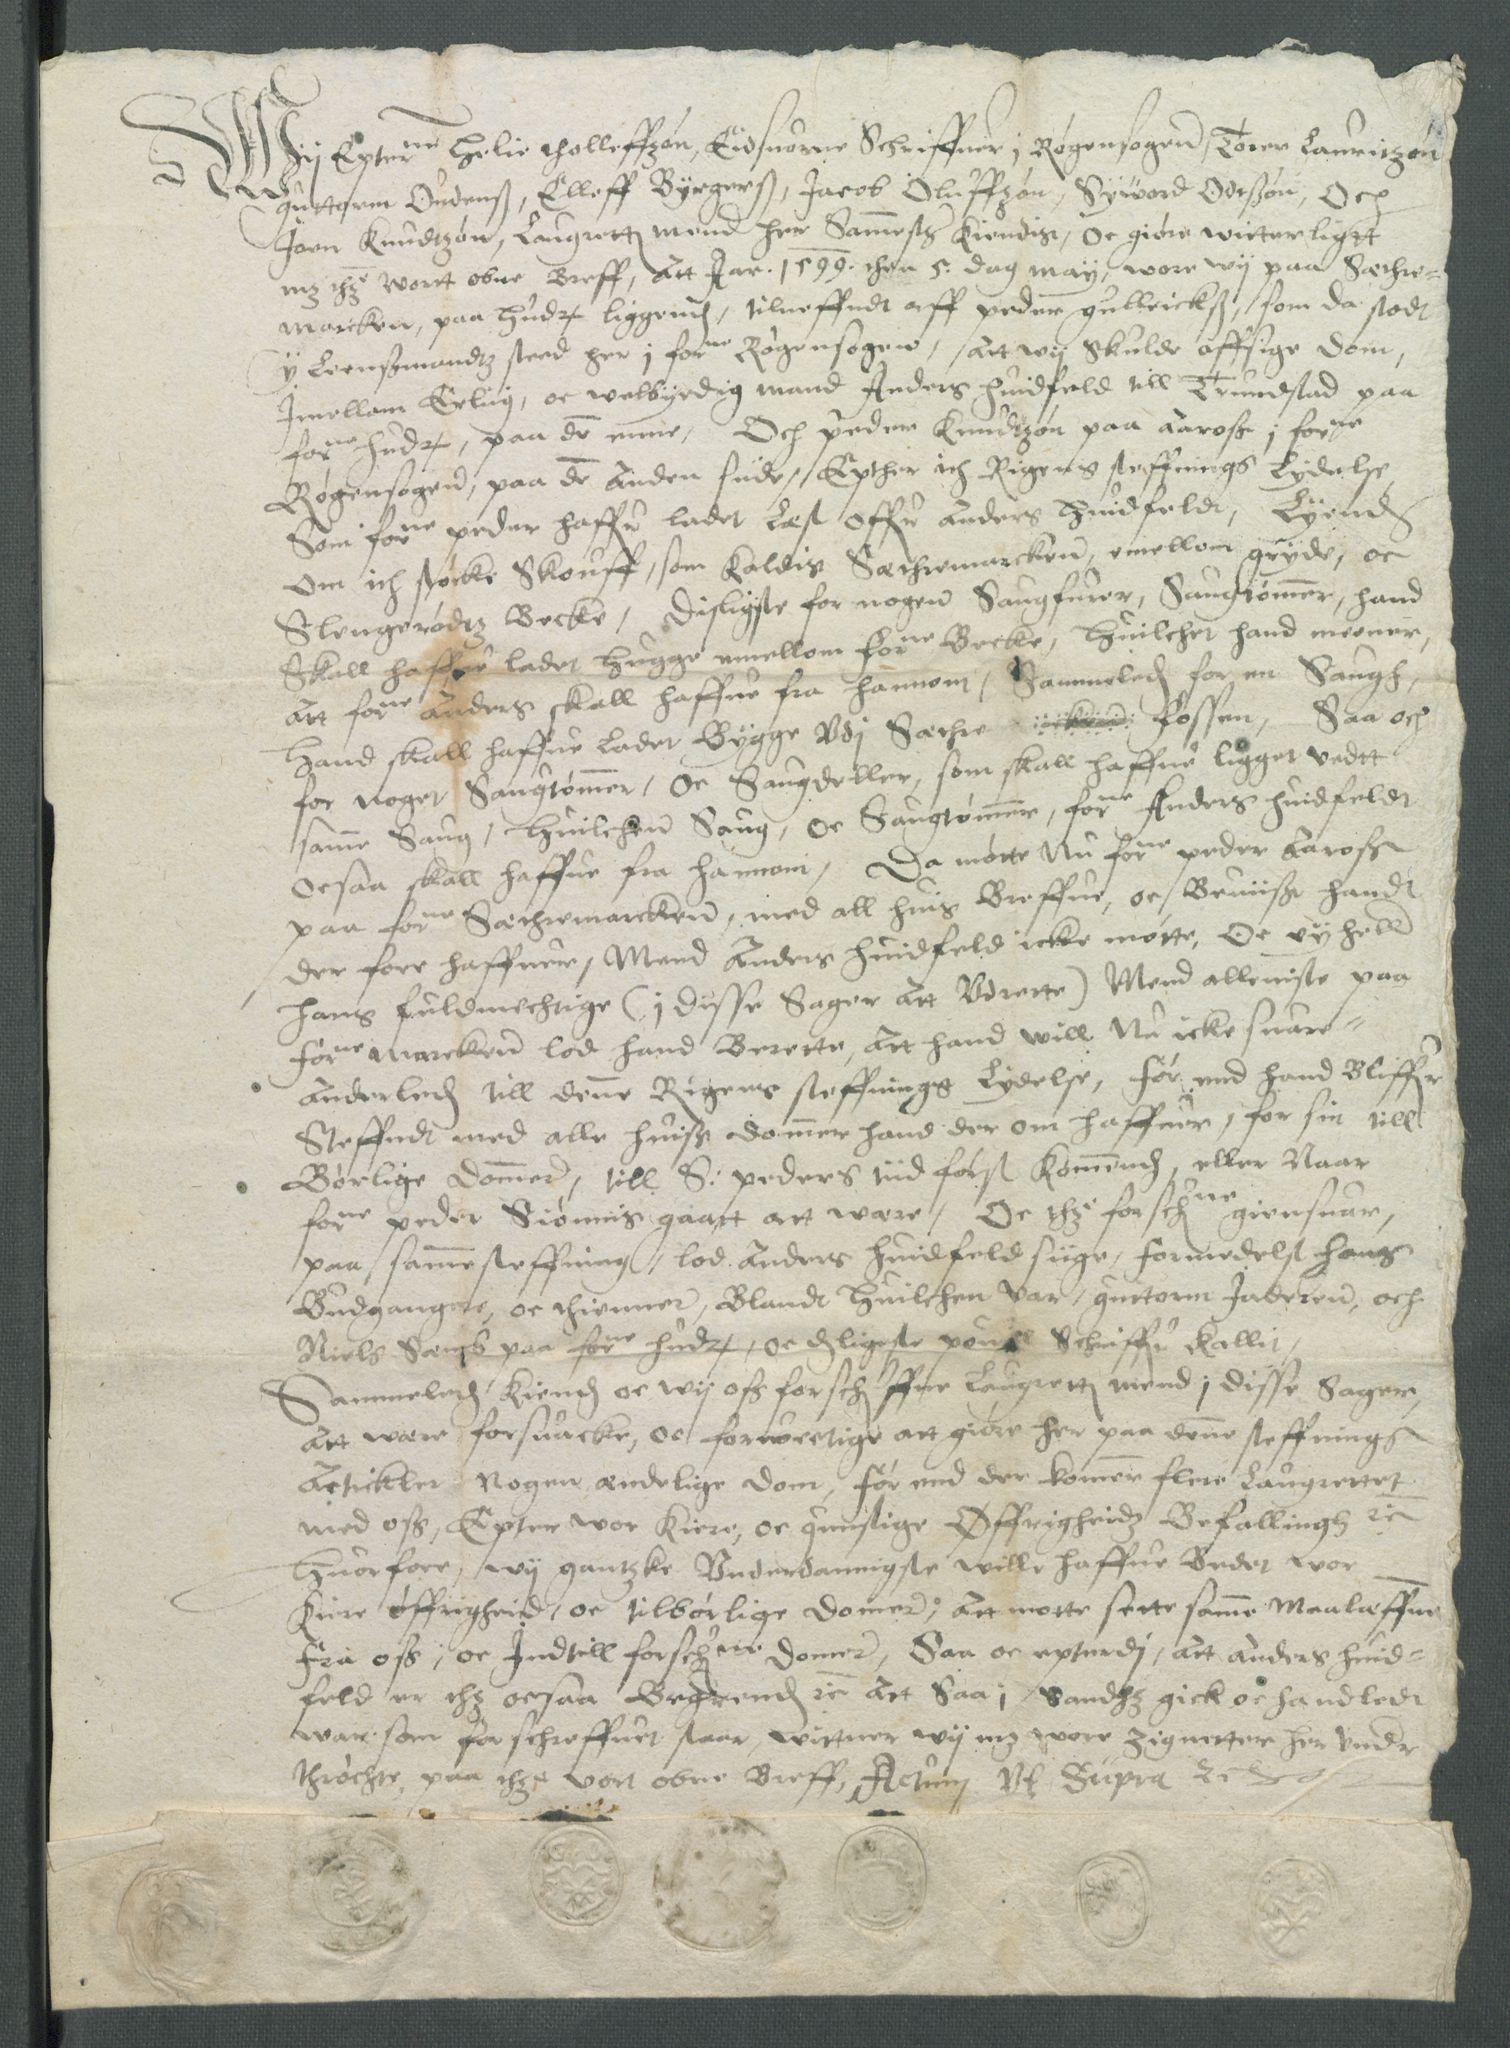 Wij Epterne Helie Tholleffzøn, Eidsuorne Schriffuer j Røgensogenn, Torer Lauritzøn
Guttorm Oudenß, Elleff Byrgerß, Jacob Oluffzøn, Syword Odtzøn, Och
Joen Knudtzøn, Laugretts mend her Sammests Kiendis, oc giøre witterligtt
mz thze wortt obne Breff, Att Aar. 1599. then 5. dag May, wore wij paa Sæthre-
marcken, paa Hudr liggends, tilneffndt aff peder gulbrickß, som da stodt
y Leensmandtz sted her j forne Røgensogenn, Att wij skulde affsige dom,
Imellom Erlig, oc welbyrdig mand Anders huidfeld till Trundstad paa
forne hudr, paa de enne, Och peder Knudtzøn paa Aaroß j forne
Røgensogenn, paa de Anden side, Epther ith Rigens steffnings Lydelse,
Som forne peder haffr ladet Læst offr Anders Huidfeldt, Lyends
om ith støcke Skouff, som Kaldis Sæthremarckenn, emellom gryde, oc
Slengerødtz Becke, Disligste for nogenn Saugfurer, Saugtømmer, hand
Skall haffue ladet Hugge emellom forne Becke, Huilchet hand meener,
Att forne Anders skall haffue fra hannom, Sammeleds for en Saugh,
Hand skall haffue Ladet Bygge Vdj Sæthre fossen, Saa och
for noget Saugtømmer, Oc Saugdeller, som skall haffue ligget vedtt
samme Saug, Huilchenn Saug, oc Saugtømmer, forne Anders huidfeldt
ocsaa skall haffue fra hannom, Da møtte Nu forne peder Aaroß
paa forne Sæthremarckenn, med all huis Breffue, oc Beuiißt handt
der fore haffuer, Mend Anders huidfeld icke møtte, Oc ey heller
hans fuldmechtige (j disse Sager Att Vdrette) Mend alleniste paa
forne marckenn lod hand Berette, Att hand will Nu icke suare
Anderleds till denne Rigens steffnings Lydelse, før end hand Bliffr
Steffndt med alle huiß dommer hand der om haffuer, for sin till
Børlige Dommer, till S: peders tiid først Kommends, eller Naar
forne peder Siønnis gaatt att were, Oc thze forschne giensuar,
paa samme steffning, lod Anders huidfeld siige, formedelst hans
Budgangere, oc thienner, Blandt Huilchen var, guttorm Inderenn, och
Niels Sæmb paa forne hudr, oc dsligeste pouell Schriffr Kallit,
Sammeleds Kiends oc wij oß forsch:ffne Laugretts mend j disse Sager,
Att were forsuacke, oc forweetige att giøre her paa denne steffnings
Artickler Nogen endelige dom, før end der kommer flere Laugrettet
med oß, Epter wor Kiere, oc gunstige Øffrigheidz Befallingh etc
Huorfore, wij gantzke Vnderdannigste wille haffue Bedet wor
Kiere øffrigheid, oc tilbørlige Domer, Att motte sette samme Maalæffne
Fra oß, oc Indtill forschne domer, Saa oc epterdj, Att Anders huid-
feld er thz ocsaa Begerends etc Att Saa j Sandhz gick oc handledt
war som forschreffuet staar, wittner wij mz wore Zignetter her vndr
thrøchte, paa thze vort obne Breff, Actum Vt Supra